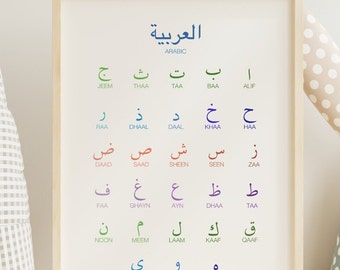 العربية
ARABIC
ا ب ت ث ج
ALIF BAA TAA THAA JEEM
ح خ د ذ ر
HAA KHAA DAAL DHAAL RAA
ز س ش ص ض
ZAA SEEN SHEEN SAAD DAAD
ط ظ ع غ ف
TAA DHAA AYN GHAYN FAA
ق ك ل م ن
QAAF KAAF LAAM MEEM NOON
ه و ي